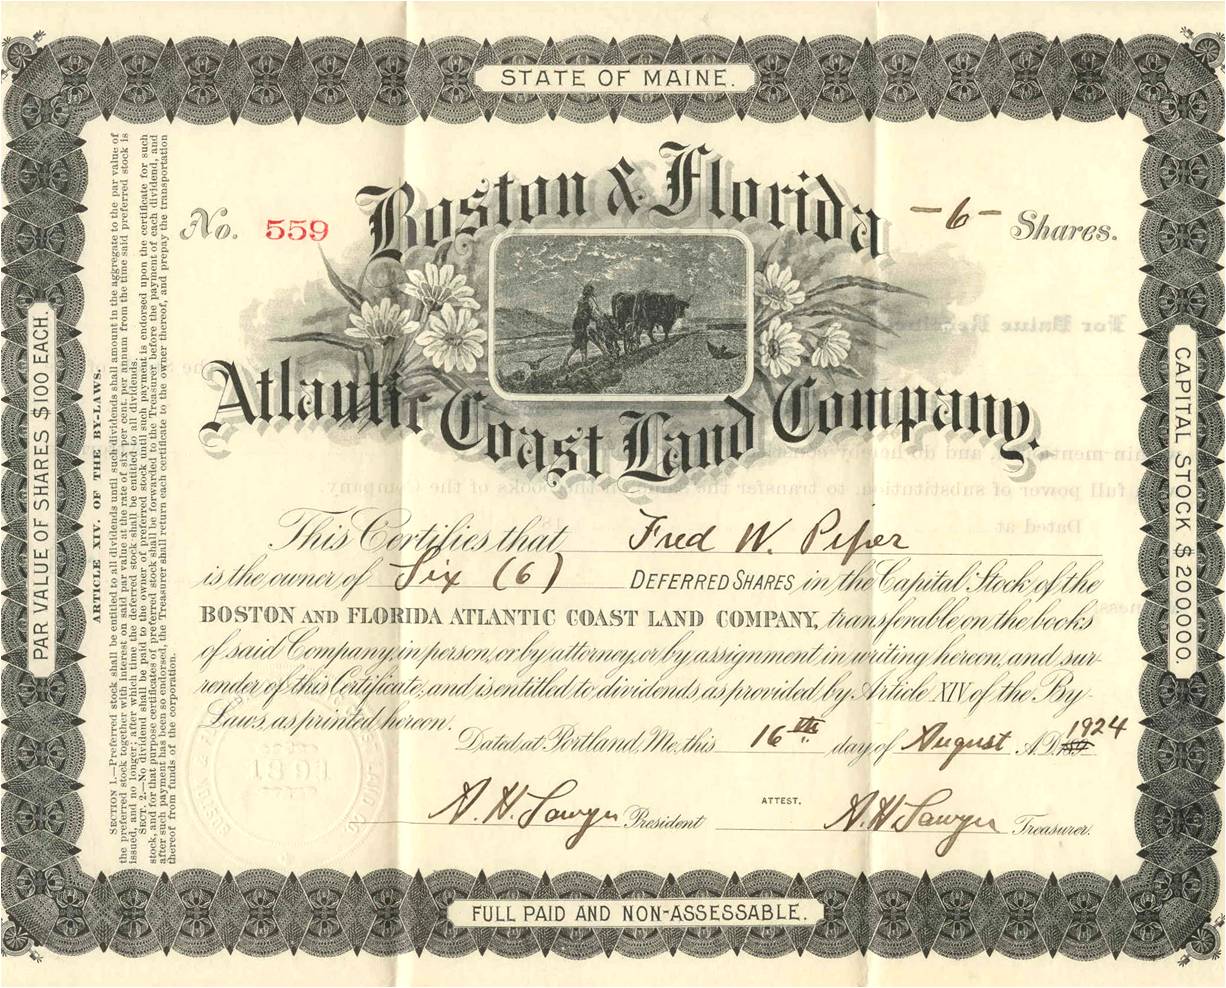 STATE OF MAINE.
No. 559
Boston & Florida
-6- Shares.
Atlantic Coast Land Company.
This Certifies that Fred W. Piper
is the owner of Six (6) DEFERRED SHARES in the Capital Stock of the
BOSTON AND FLORIDA ATLANTIC COAST LAND COMPANY, transferable on the books
of said Company, in person, or by attorney, or by assignment in writing hereon, and sur-
render of this Certificate, and is entitled to dividends as provided by Article XIV of the By-
Laws, as printed hereon.
Dated at Portland, Me, this 16th day of August A.D. 1924
A. H. Sawyer President
ATTEST.
A. H. Sawyer Treasurer.
FULL PAID AND NON-ASSESSABLE.
PAR VALUE OF SHARES $100 EACH.
CAPITAL STOCK $200,000.
ARTICLE XIV. OF THE BY-LAWS.
SECTION 1.—Preferred stock shall be entitled to all dividends until such dividends shall amount in the aggregate to the par value of
the preferred stock together with interest on said par value at the rate of six per cent. per annum from the time said preferred stock is
issued, and no longer; after which time the deferred stock shall be entitled to all dividends.
SECT. 2.—No dividend shall be paid to the owner of preferred stock until such payment is endorsed upon the certificate for such
stock, and for that purpose certificates of preferred stock shall be forwarded to the Treasurer before the payment of each dividend, and
after such payment has been so endorsed, the Treasurer shall return each certificate to the owner thereof, and prepay the transportation
thereof from funds of the corporation.
1891